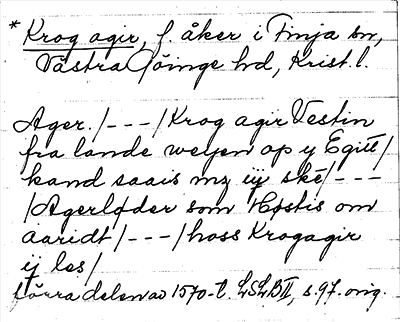 * Krog agir, f. åker i Finja sn,
Västra Göinge hd, Krist. l.
Ager. /---/ Krog agir Vestin
fra lande weyen op y Egitt/
kand saais mz iij ske/---
/Agerløder som Høstis om
aaridt/---/hoss Krogagir
ij les/
förra delen av 1570-t. LSLB II, s. 97. orig.